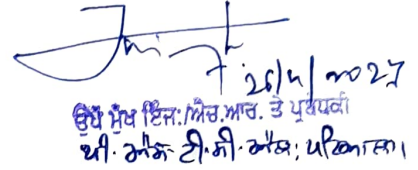 26/5/2027
ਉਪ ਮੁੱਖ ਇੰਜ:/ਐਚ.ਆਰ. ਤੇ ਪ੍ਰਬੰਧਕੀ
ਪੀ.ਐਸ.ਟੀ.ਸੀ.ਐਲ; ਪਟਿਆਲਾ।